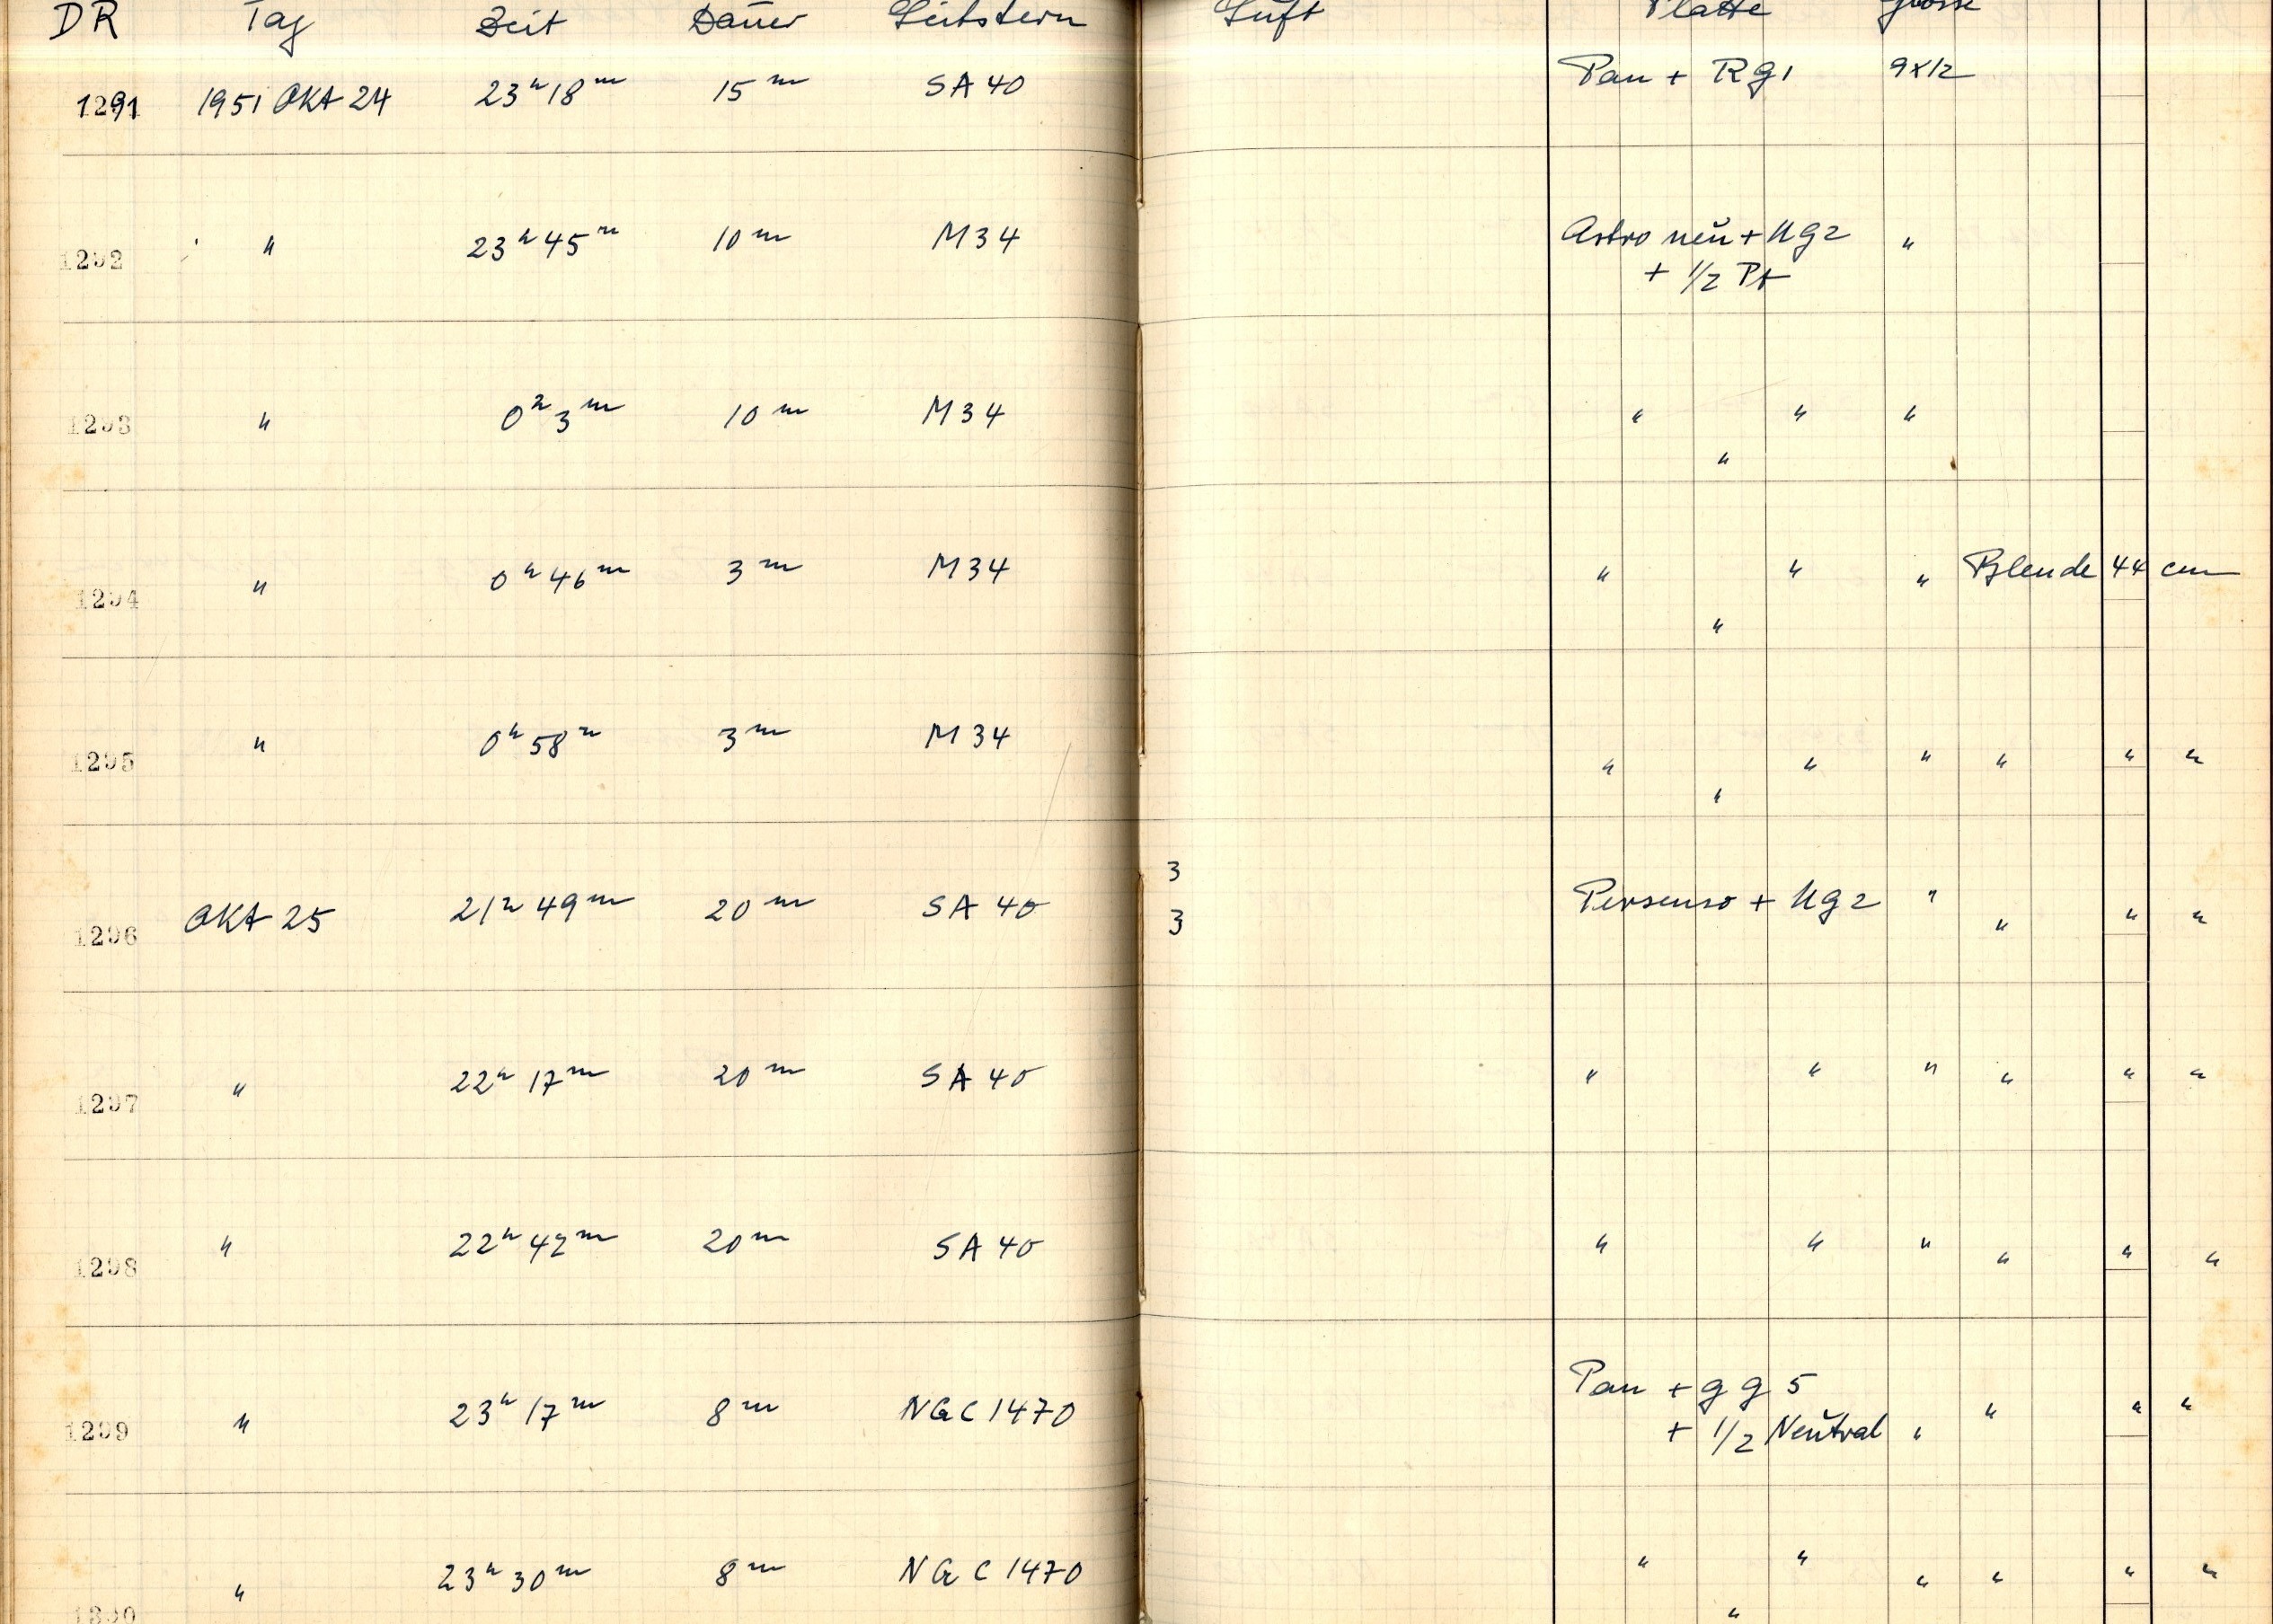 DR Tag Zeit Dauer Leitstern Luft Platte Grösse
1291 1951 OKT 24 23h 18m 15m SA 40 Pan + Rg1 9x12
1292 " 23h 45m 10m M34 Astro neu + Ug2 "
+ 1/2 Pt
1293 " 0h 3m 10m M34 " " "
"
1294 " 0h 46m 3m M34 " " " Blende 44 cm
"
1295 " 0h 58m 3m M34 " " " " " "
"
3
1296 OKT 25 21h 49m 20m SA 40 3 Persenso + Ug2 " " " "
1297 " 22h 17m 20m SA 40 " " " " " "
1298 " 22h 42m 20m SA 40 " " " " " "
1299 " 23h 17m 8m NGC 1470 Pan + gg 5 " " "
+ 1/2 Neutral "
1300 " 23h 30m 8m NGC 1470 " " " " " "
"